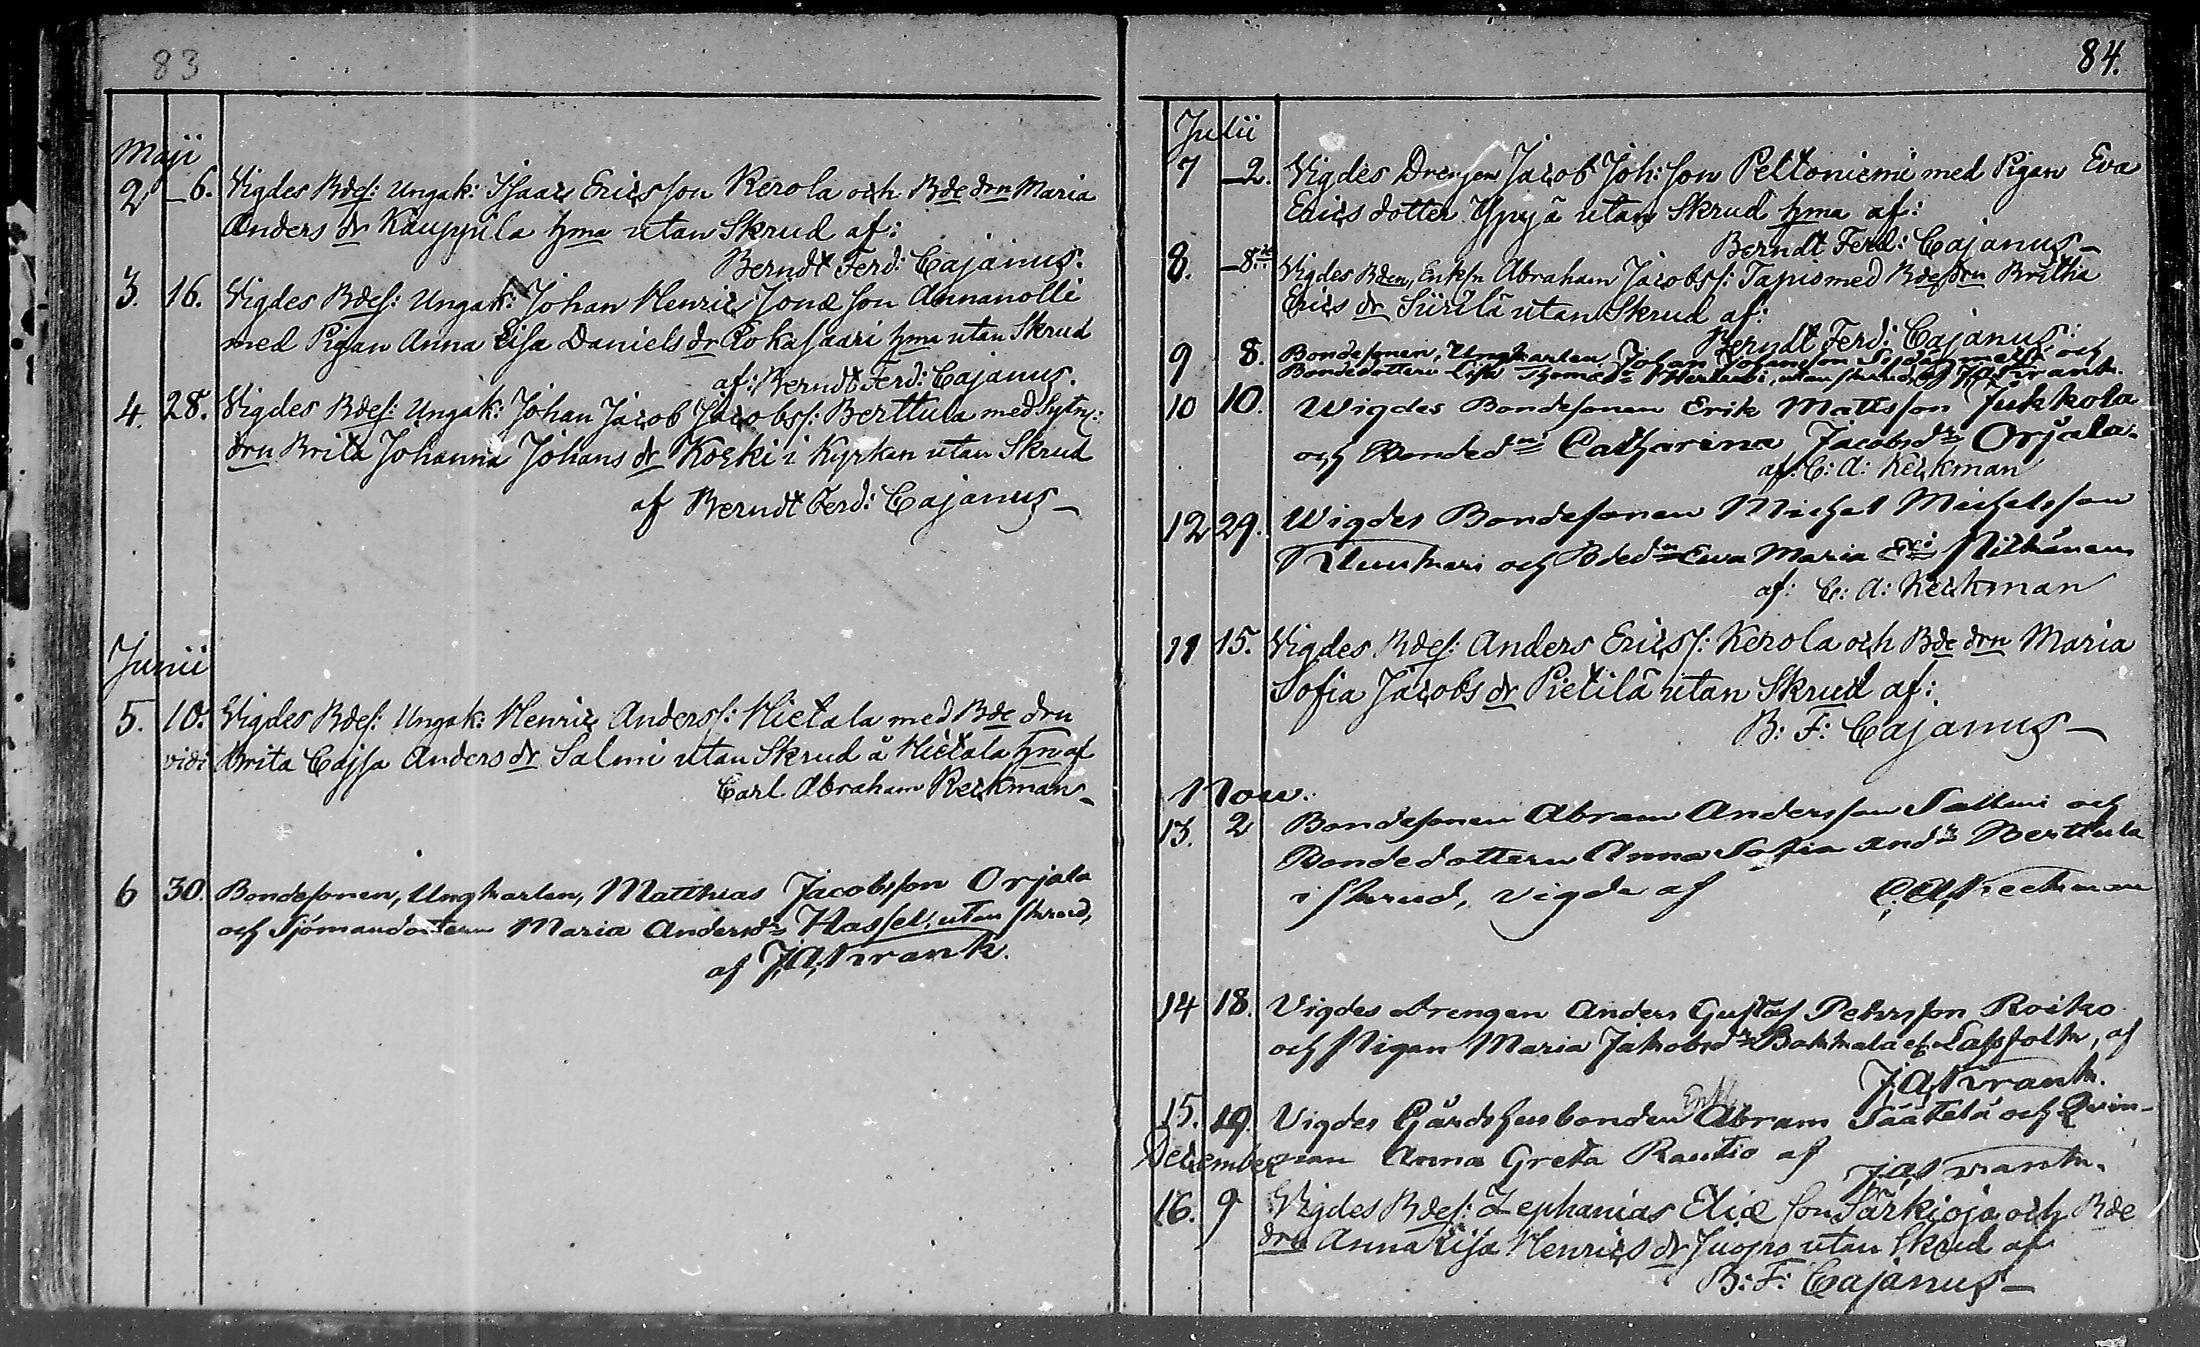 83
Maji
2 _ 6. Vigdes Bdes: Ungak: Isaac Ericsson Kerola och Bde drn Maria
Anders dr Kauppila hma utan Skrud af:
Berndt Ferd: Cajanus.
3. 16. Vigdes Bdes: Ungak: Johan Henric Jonæ son Annanolli
med Pigan Anna Lisa Daniels dr hma utan Skrud
af: Berndt Ferd: Cajanus.
4. 28. Vigdes Bdes: Ungak: Johan Jacob Jacobss: Berttula med Sytn:
drn Brita Johanna Johans dr Koski i Kyrkan utan Skrud
af Berndt Ferd: Cajanus _
Junii
5. 10. Vigdes Bdes: Ungak: Henric Anderss: Hietala med Bde drn
vidi Brita Cajsa Anders dr Salmi utan Skrud å Hietala hn af
Carl Abraham Keckman _
6 30. Bondesonen, Ungkarlen, Matthias Jacobsson Orjala
och Sjömandottern Maria Andersdr Hassel, utan skrud,
af J. A. Krank.
84.
Julii
7 _ 2. Vigdes Drengen Jacob Joh: son Peltoniemi med Pigan Eva
Erics dotter Ypyä utan Skrud hma af:
Berndt Ferd: Cajanus _
8. _ 8. Vigdes Bden, Enkln Abraham Jacobss: Tapio med Bde drn Britha
Erics dr Siirilä utan Skrud af:
Berndt Ferd: Cajanus:
9 8. Bondesonen, Ungkarlen Johan Johansson och
Bondedottern Lisa utan skrud, af J. A. Krank.
10 10. Wigdes Bondesonen Erik Mattsson Jukkola
och Bondedn Catharina Jacobsdr Orjala.
af: C: A: Keckman
12 29. Wigdes Bondesonen Michel Michelsson
och Bdedn Ewa Maria Pitkänen
af: C: A: Keckman
11 15. Vigdes Bdes: Anders Ericss: Kerola och Bde drn Maria
Sofia Jacobs dr Pietilä utan Skrud af:
B: F: Cajanus _
Nov.
13. 2 Bondesonen Abram Andersson Salmi och
Bondedottern Anna Sofia Andr Berttula
i skrud, vigde af C. A. Keckman
14 18. Vigdes drengen Anders Gustaf Petersson Roiko
och Pigan Maria Jakobsdr Bakkala af
J. A. Krank.
15. 19. Vigdes Gårdshusbonden Enkl Abram Säätelä och Qvin-
December nan Anna Greta Rautio af J. A. Krank.
16. 9 Vigdes Bdes: Zephanias Eliæ son Särkioja och Bde
drn Anna Lisa Henrics dr Juopo utan Skrud af
B: F: Cajanus _